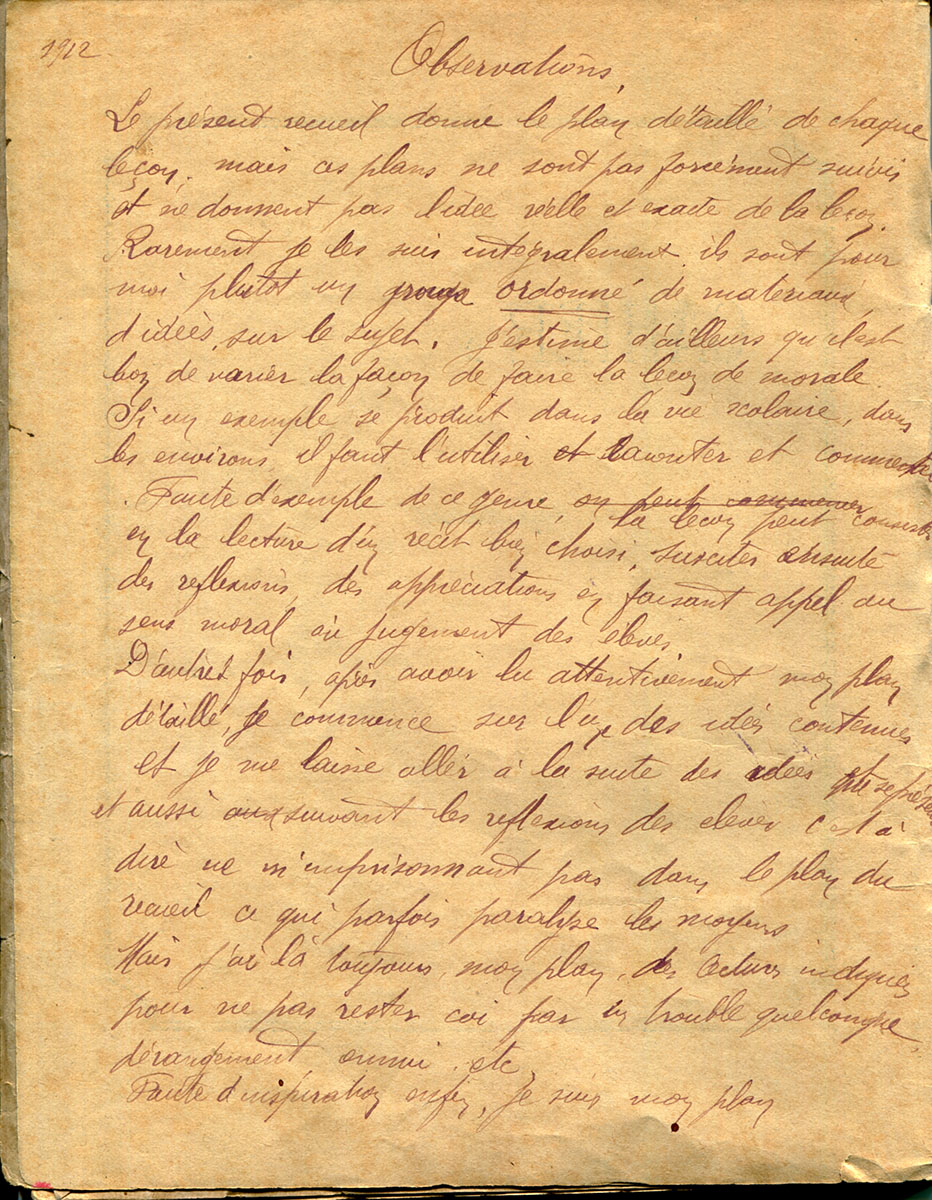 1912
Observations.
Le présent recueil donne le plan détaillé de chaque
leçon, mais ces plans ne sont pas forcément suivis
et ne donnent pas l'idée réelle et exacte de la leçon.
Rarement je les suis intégralement, ils sont pour
moi plutot un groupe ordonné de matériaux,
d'idées, sur le sujet. J'estime d'ailleurs qu'il est
bon de varier la façon de faire la leçon de morale.
Si un exemple se produit dans la vie scolaire, dans
les environs, il faut l'utiliser et raconter et commenter
. Faute d'exemple de ce genre, on peut commencer
la leçon peut consister
en la lecture d'un récit bien choisi, susciter ensuite
des reflexions, des appréciations en faisant appel au
sens moral en jugement des élèves.
D'autres fois, après avoir lu attentivement mon plan
détaillé, je commence sur l'une des idées contenues
et je me laisse aller à la suite des idées
et aussi aux suivant les reflexions des eleves c'est à
dire ne m'emprisonnant pas dans le plan du
recueil ce qui parfois paralyse les moyens
Mais j'ai là toujours, mon plan, des lectures indiquées
pour ne pas rester coi par un trouble quelconque,
dérangement, ennui, etc.
Faute d'inspiration enfin, je suis mon plan